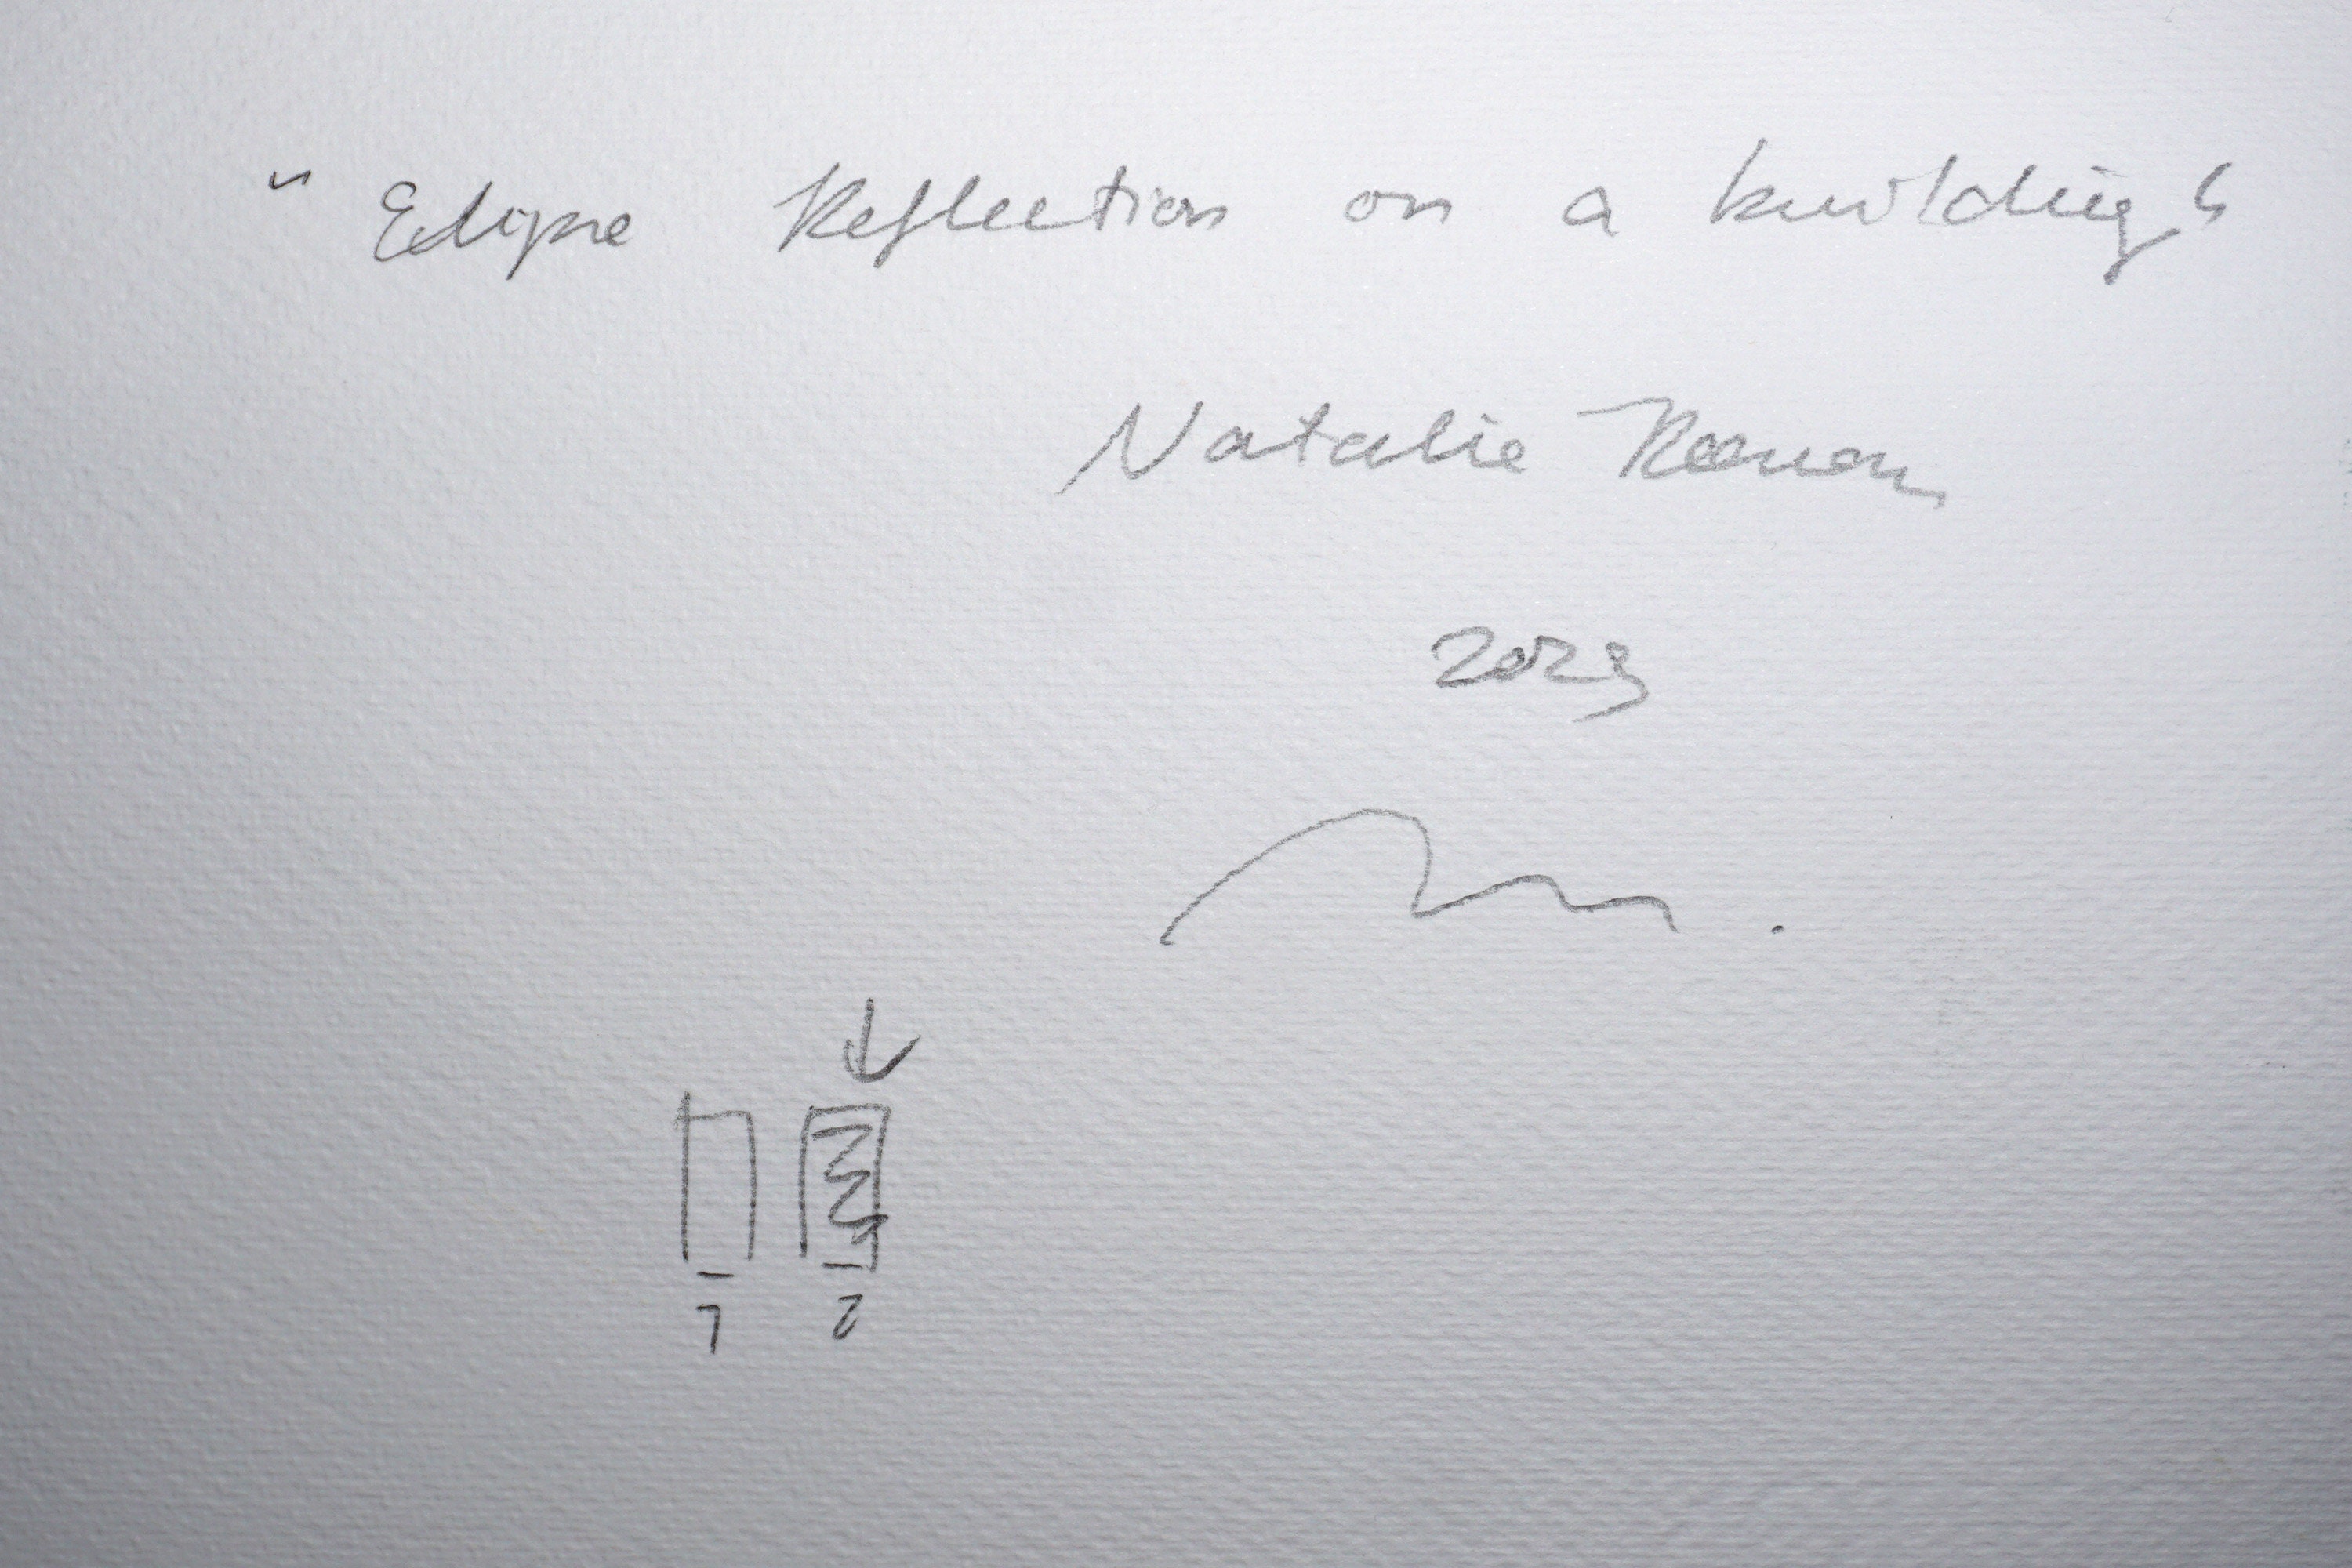 "Eclipse Reflection on a building"
Natalie
2023
1 2